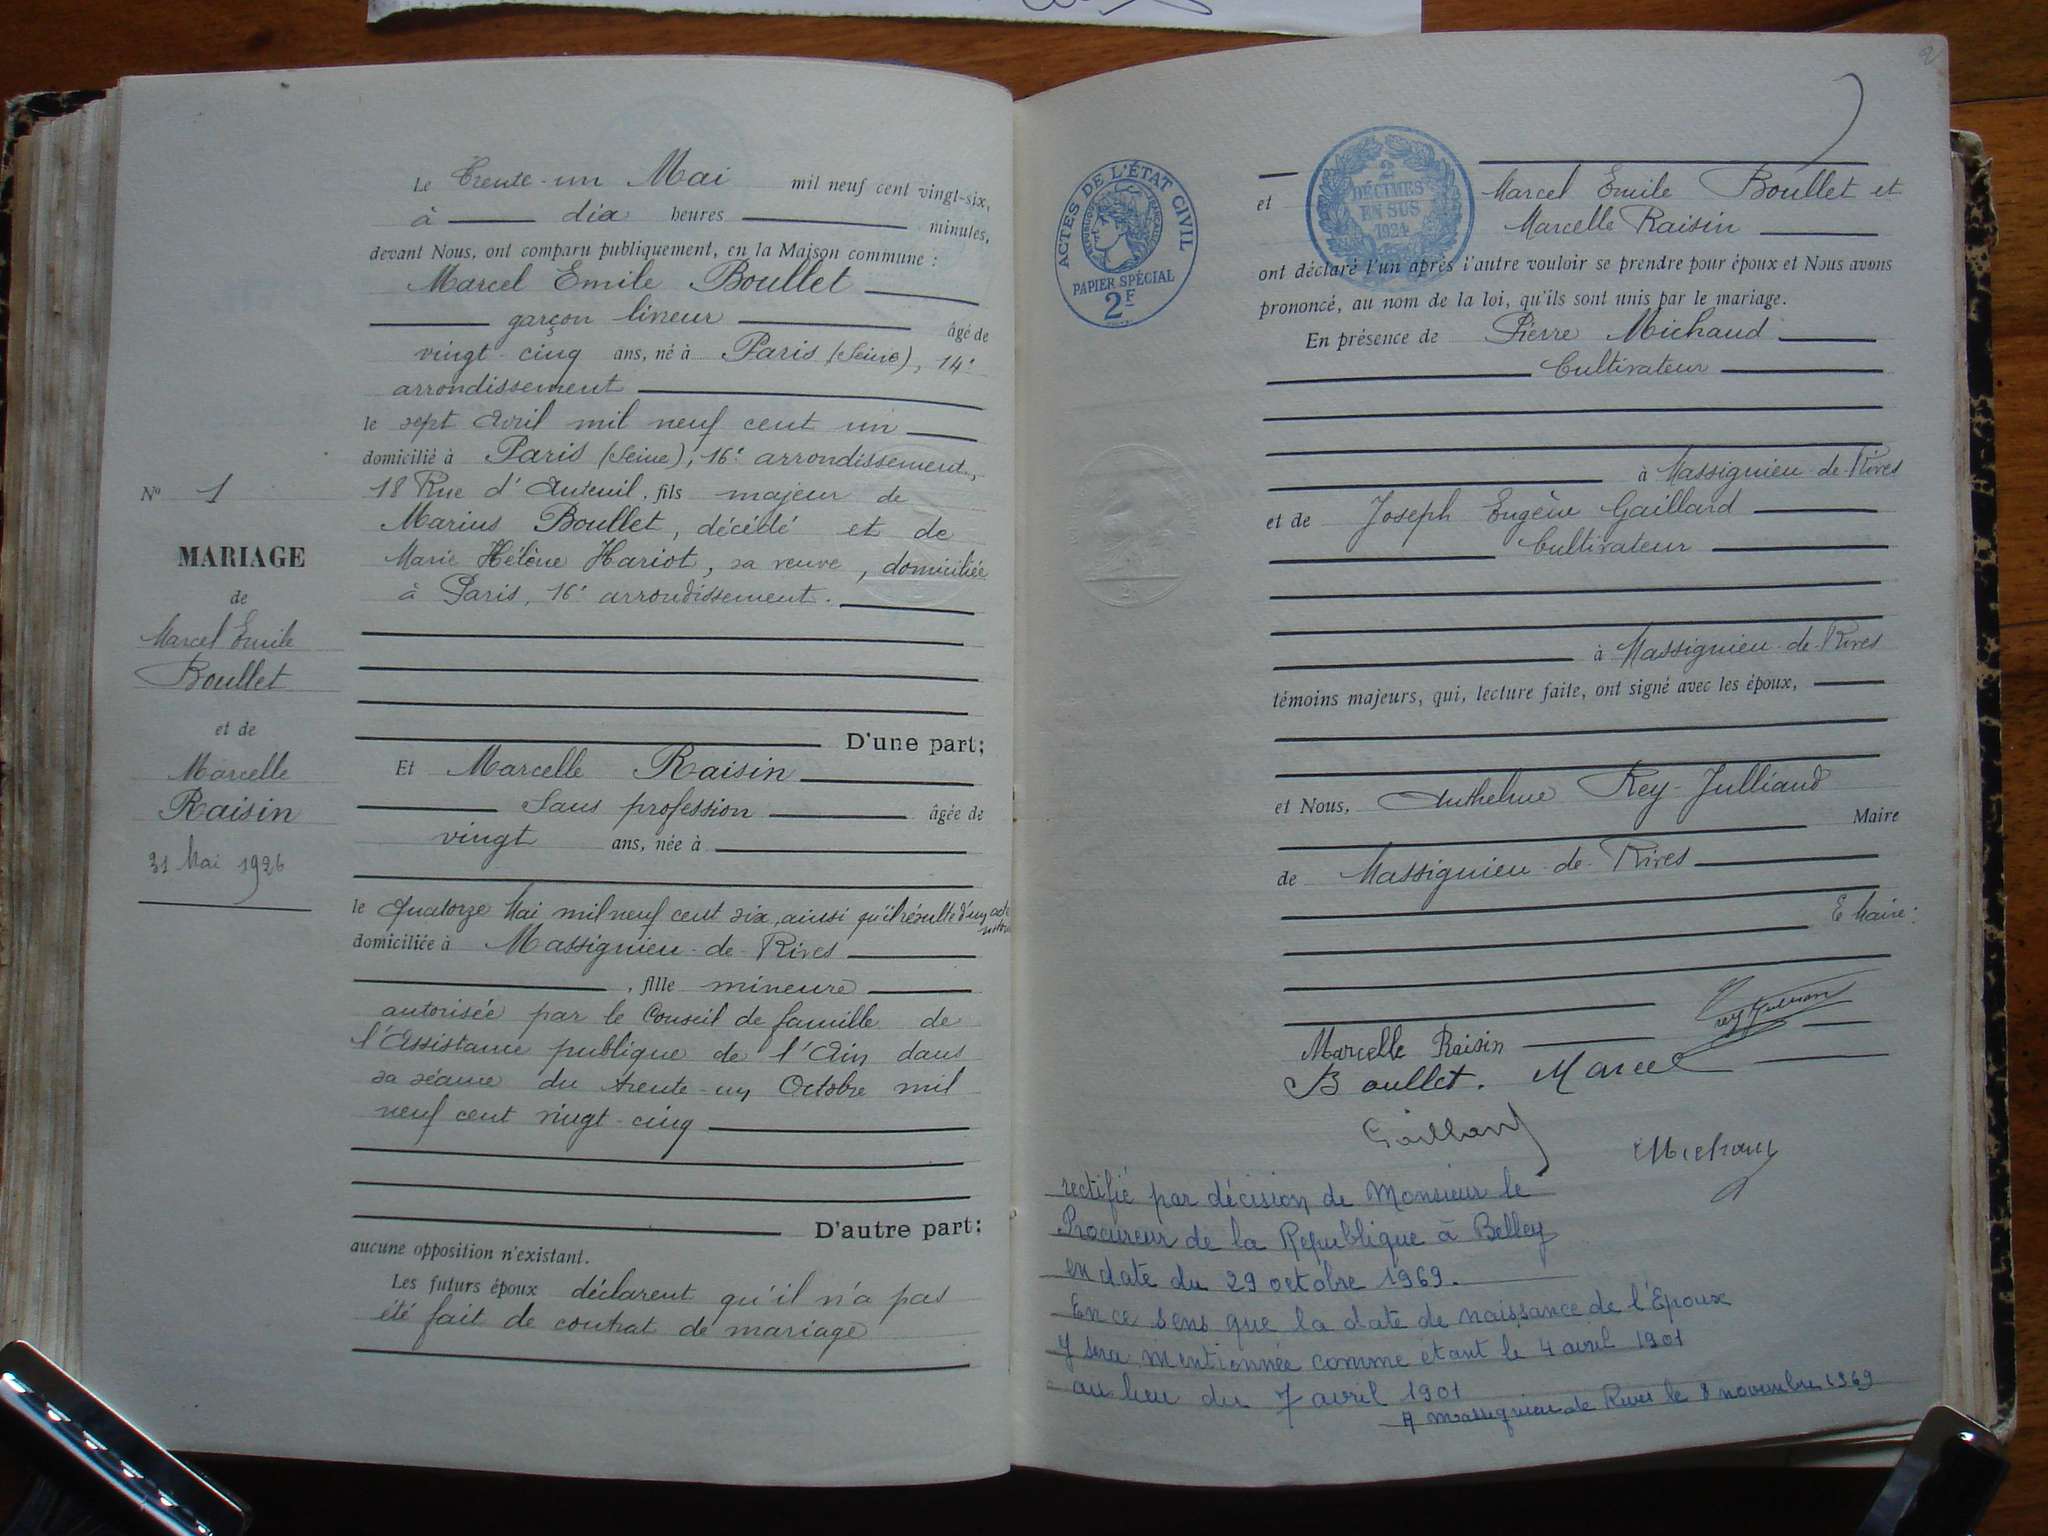 Nº 1
MARIAGE
de
Marcel Emile
Boullet
et de
Marcelle
Raisin
31 Mai 1926
Le Trente-un Mai mil neuf cent vingt-six,
à dix heures minutes,
devant Nous, ont comparu publiquement, en la Maison commune :
Marcel Emile Boullet
garçon livreur âgé de
vingt-cinq ans, né à Paris (Seine), 14e
arrondissement
le sept Avril mil neuf cent un
domicilié à Paris (Seine), 16e arrondissement,
18 Rue d'Auteuil, fils majeur de
Marius Boullet, décédé et de
Marie Hélène Hariot, sa veuve, domiciliée
à Paris, 16e arrondissement.
D'une part;
Et Marcelle Raisin
Sans profession âgée de
vingt ans, née à
le Quatorze Mai mil neuf cent six, ainsi qu'il résulte d'un acte
domiciliée à Massignieu-de-Rives
, fille mineure
autorisée par le Conseil de famille de
l'Assistance publique de l'Ain dans
sa séance du trente-un Octobre mil
neuf cent vingt-cinq
D'autre part;
aucune opposition n'existant.
Les futurs époux déclarent qu'il n'a pas
été fait de contrat de mariage
2
ACTES DE L'ÉTAT CIVIL
RÉPUBLIQUE FRANÇAISE
PAPIER SPÉCIAL
2F
2
DÉCIMES
EN SUS
1924
et Marcel Emile Boullet et
Marcelle Raisin
ont déclaré l'un après l'autre vouloir se prendre pour époux et Nous avons
prononcé, au nom de la loi, qu'ils sont unis par le mariage.
En présence de Pierre Michaud
Cultivateur
à Massignieu-de-Rives
et de Joseph Eugène Gaillard
Cultivateur
à Massignieu-de-Rives
témoins majeurs, qui, lecture faite, ont signé avec les époux,
et Nous, Anthelme Rey-Julliand
Maire
de Massignieu-de-Rives
Marcelle Raisin
Boullet. Marcel
Gaillard
Michaud
rectifié par décision de Monsieur le
Procureur de la République à Belley
en date du 29 octobre 1969.
En ce sens que la date de naissance de l'Epoux
y sera mentionnée comme étant le 4 avril 1901
au lieu du 7 avril 1901
A Massignieu de Rives le 8 novembre 1969